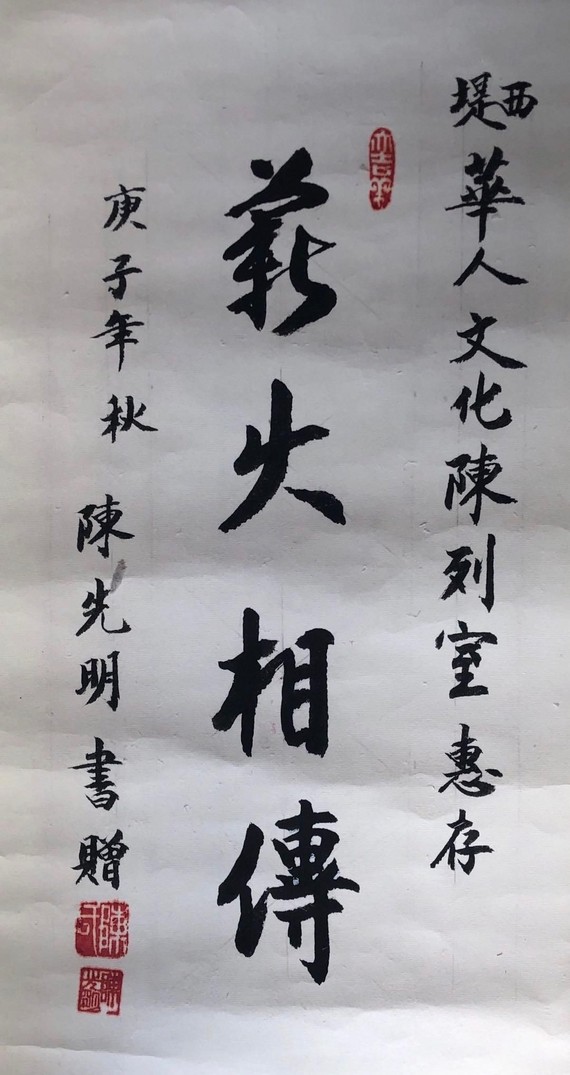 西堤華人文化陳列室惠存
薪火相傳
庚子年秋 陳先明書贈